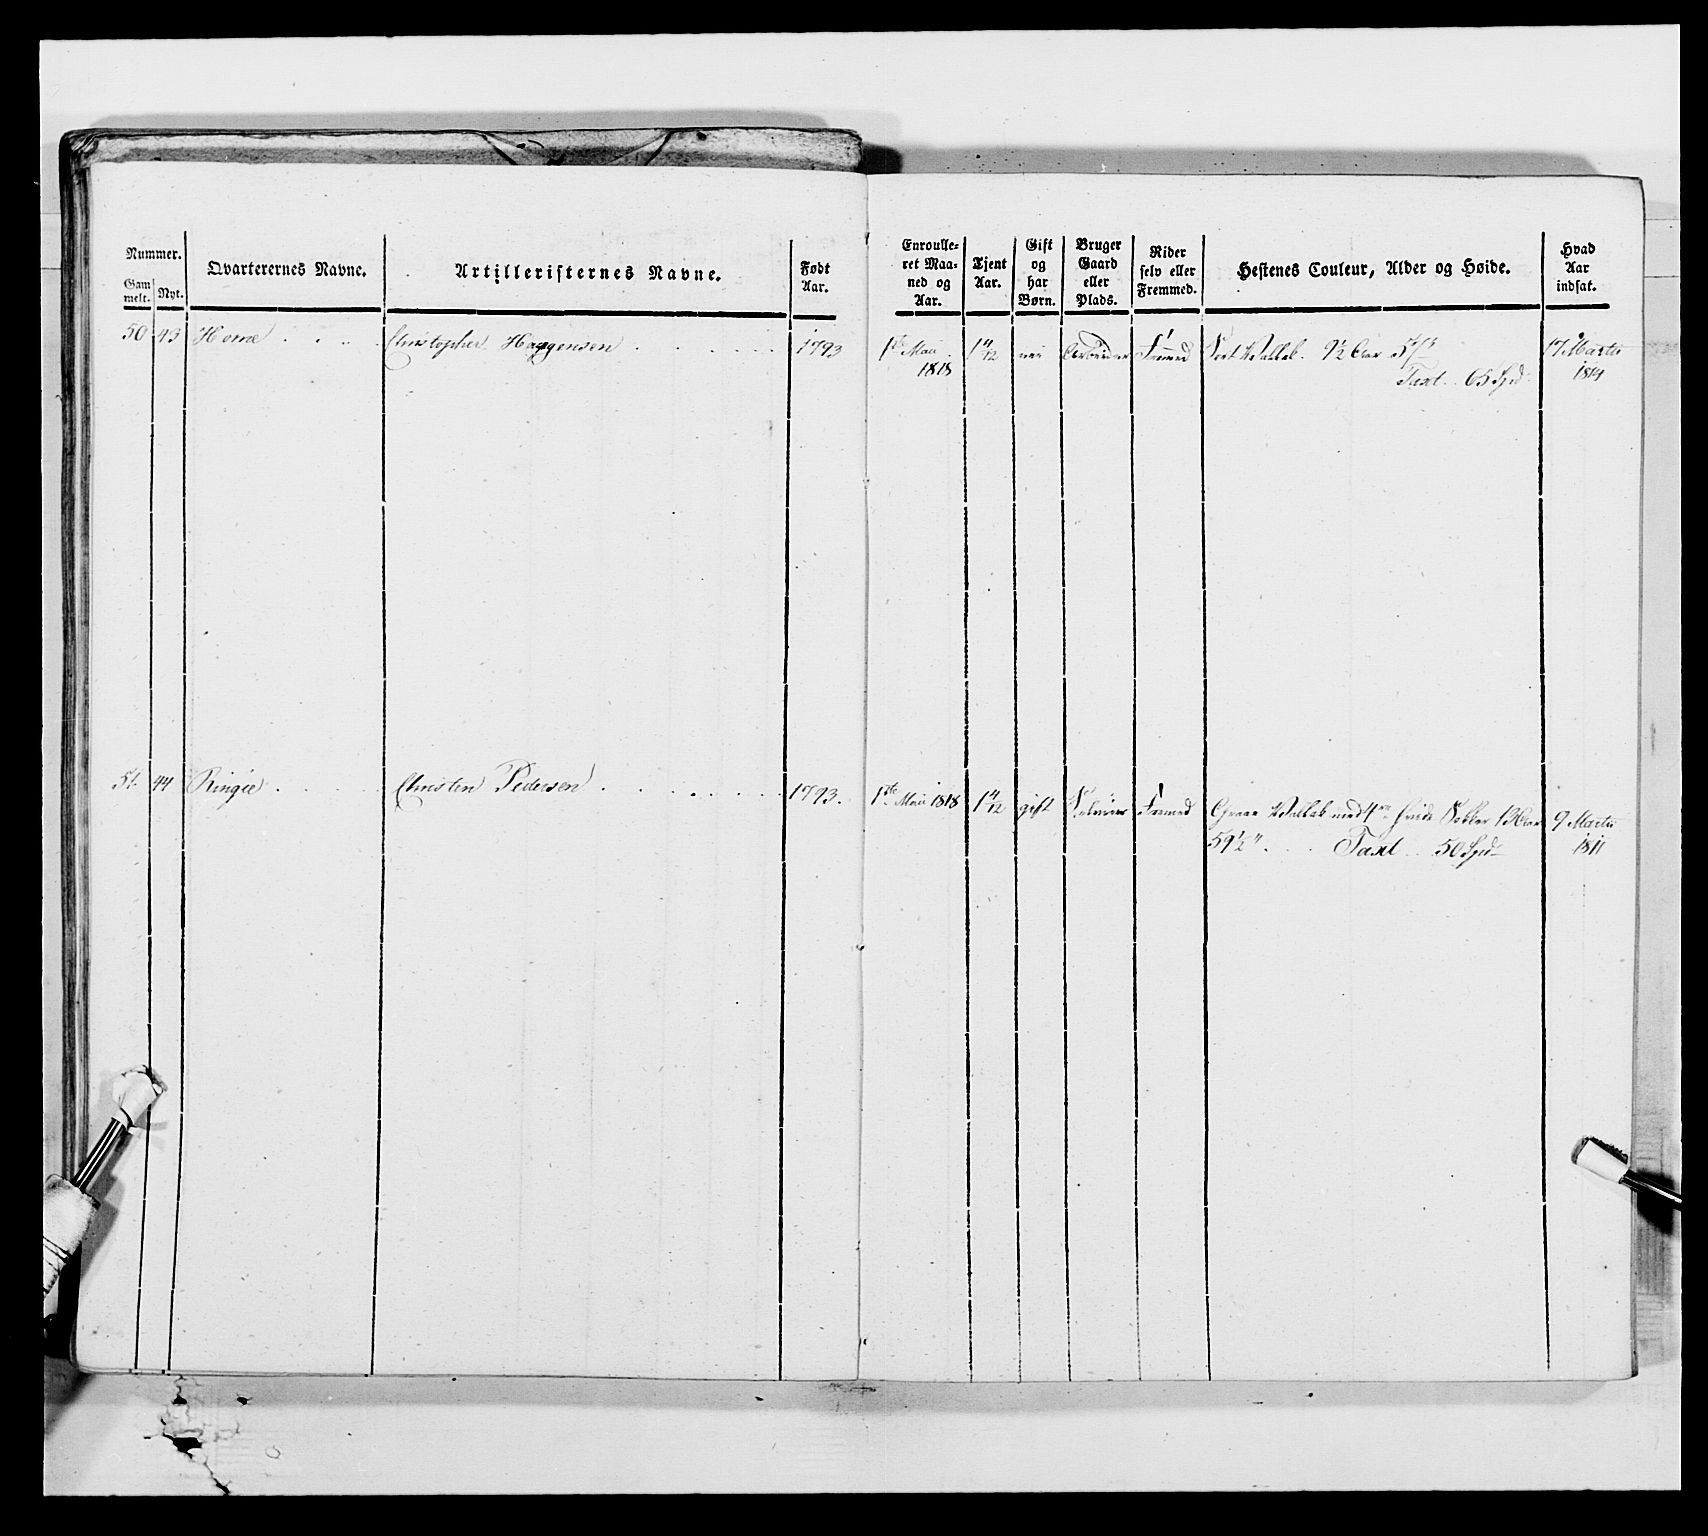 Nummer.
Gam
melt.
Nyt.
Qvarterernes Navne.
Artilleristernes Navne.
Født
Aar.
Enroulle-
ret Maa-
ned og
Aar.
Tjent
Aar.
Gift
og
har
Børn.
Bruger
Gaard
eller
Plads.
Rider
selv eller
Fremmed.
Hestenes Couleur, Alder og Høide.
Hvad
Aar
indsat.
50 43 Horne Christopher Haagensen 1793 1ste Maii 1 4/12 nei Arbeider Fremed Sort Vallak. 9½ Aar 17 Martii
1818 Taxt 65 Spd 1814
51. 44 Ringie Christen Pedersen 1793. 1ste Maii 1818 1 4/12 gift Fremed Graae Vallak med 4re hvide Sokker 13 Aar 9 Martii
59½" Taxt 50 Spd 1811